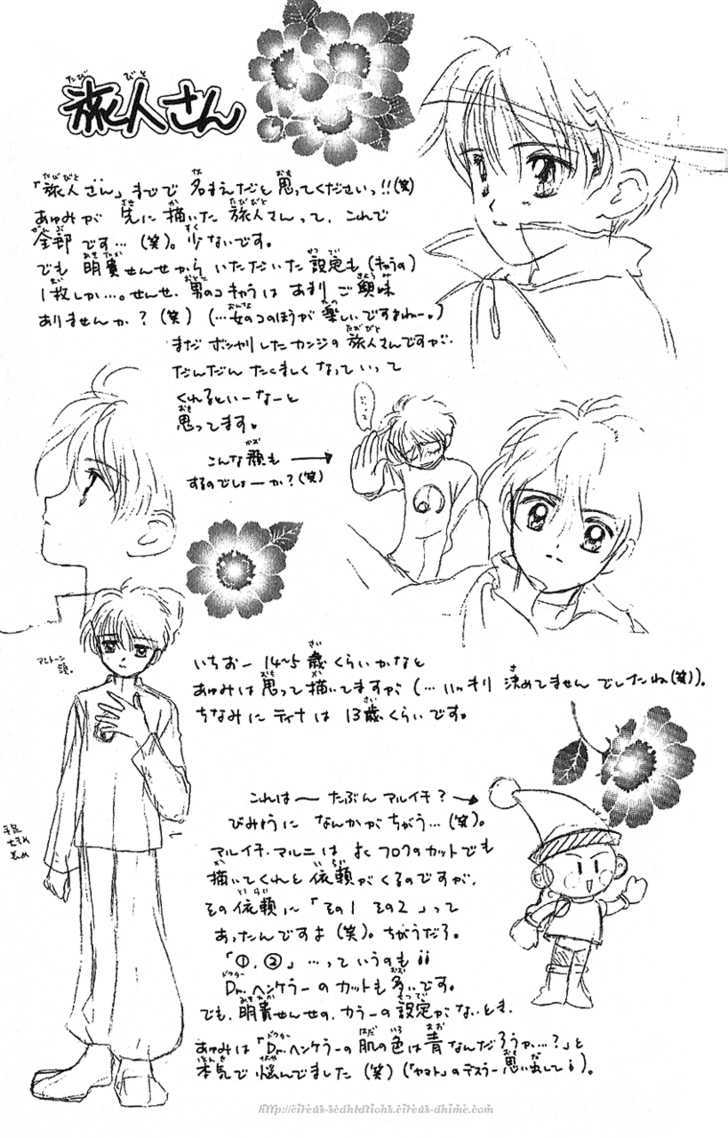 旅人さん
「旅人さん」までで 名まえだと思ってくださいっ!!(笑)
あゆみが 先に描いた 旅人さんって、これで
全部です…(笑)。少ないです。
でも 明貴せんせから いただいた 設定も(キャラの)
1枚しか…。せんせ、男のコキャラは あまり ご興味
ありませんか?(笑)(…女のコのほうが 楽しいですよねー。)
まだ ボンヤリしたカンジの 旅人さんですが、
だんだん たくましくなっていって
くれるといーなーと
思ってます。
こんな顔も →
するのでしょーか?(笑)
いちおー 14~5歳くらいかなと
あゆみは 思って描いてますが(…ハッキリ 決めてませんでしたね(笑))。
ちなみに ティナは 13歳くらいです。
これはー たぶん マルイチ? →
びみょうに なんかが ちがう…(笑)。
マルイチ・マルニは よく フロクのカットでも
描いてくれと 依頼がくるのですが、
その依頼に「その1 その2」って
あったんですよ(笑)。ちがうだろ。
「①、②」…っていうのも!!
Dr.ヘンケラーのカットも 多いです。
でも、明貴せんせの、カラーの設定がないとき、
あゆみは「Dr.ヘンケラーの 肌の色は 青なんだろうか…?」と
本気で 悩んでました(笑)(「ヤマト」のデスラー 思い出して!)。